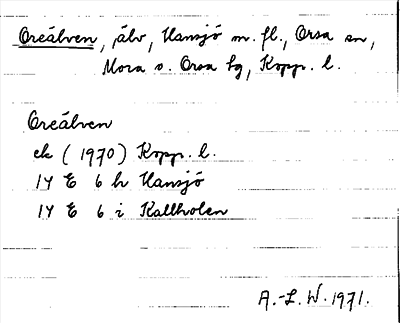 Oreälven, älv, Hansjö m. fl., Orsa sn,
Mora o. Orsa tg, Kopp. l.
Oreälven
ek (1970) Kopp. l.
14 E 6 h Hansjö
14 E 6 i Kallholen
A.-L. W. 1971.